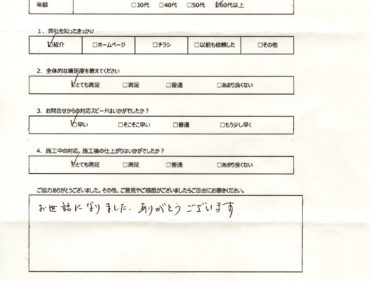 年齢 □30代 □40代 □50代 ☑60代以上
1. 弊社を知ったきっかけ
☑紹介 □ホームページ □チラシ □以前も依頼した □その他
2. 全体的な満足度を教えてください
☑とても満足 □満足 □普通 □あまり良くない
3. お問合せからの対応スピードはいかがでしたか？
☑早い □そこそこ早い □普通 □もう少し早く
4. 施工中の対応、施工後の仕上がりはいかがでしたか？
☑とても満足 □満足 □普通 □あまり良くない
ご協力ありがとうございました。その他、ご意見やご感想がございましたらご自由にお書きください。
お世話になりました。ありがとうございます